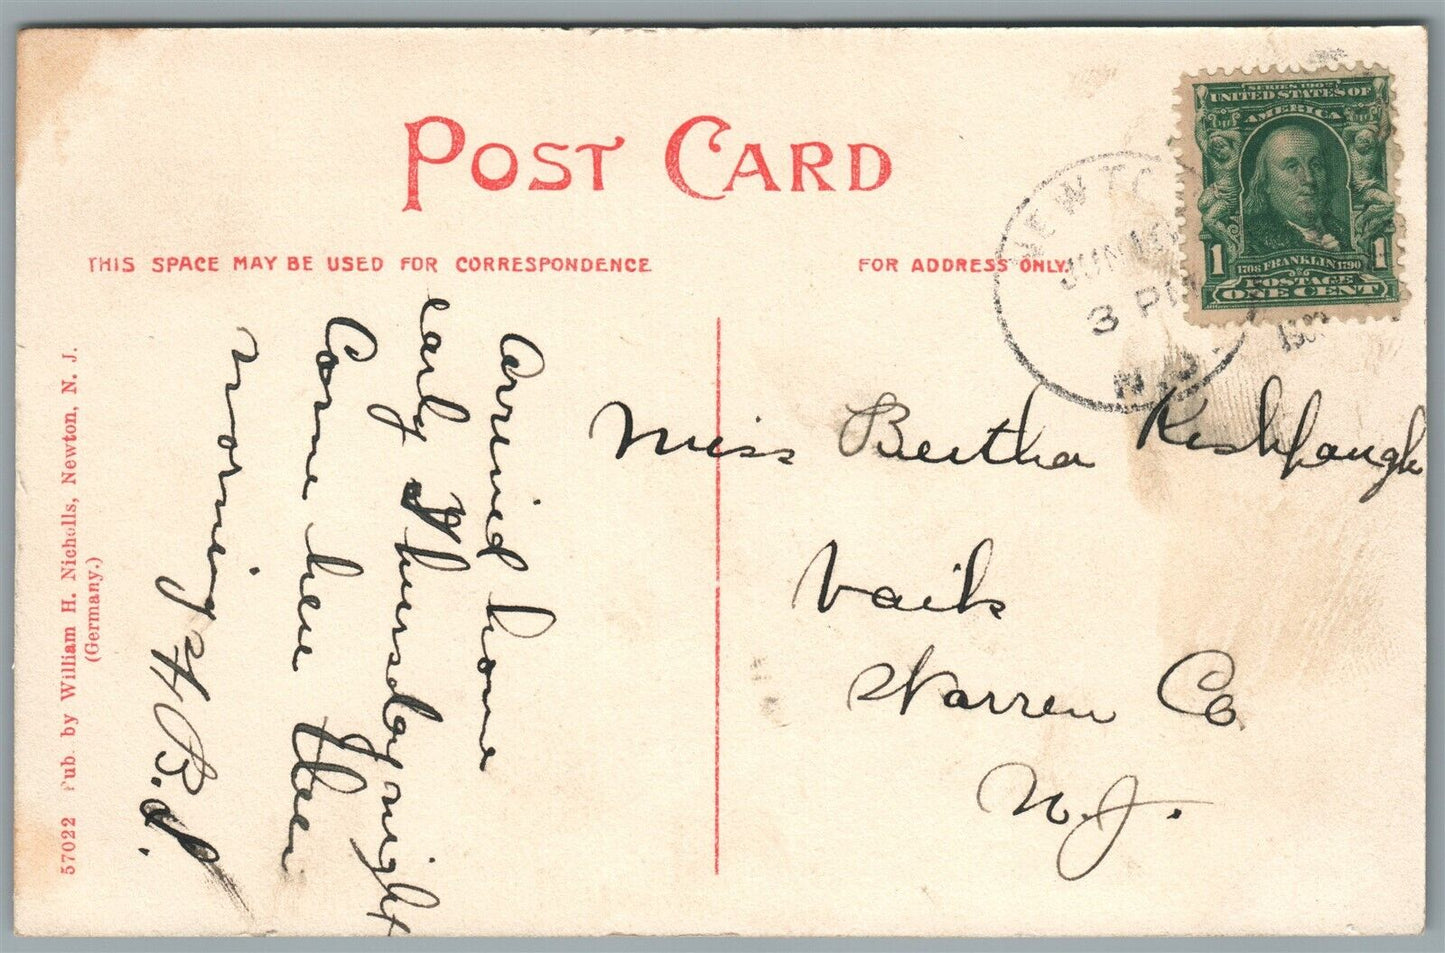 POST CARD
THIS SPACE MAY BE USED FOR CORRESPONDENCE
FOR ADDRESS ONLY.
SERIES 1902
UNITED STATES OF
AMERICA
1 1
1706 FRANKLIN 1790
POSTAGE
ONE CENT
NEWTO
JUN 10
3 PM
N.J.
Arrived home
early Thursday night
Come here then
morning
H. B. S.
Miss Bertha Kishpaugh
Vails
Warren Co
N. J.
57022 Pub. by William H. Nicholls, Newton, N. J.
(Germany.)